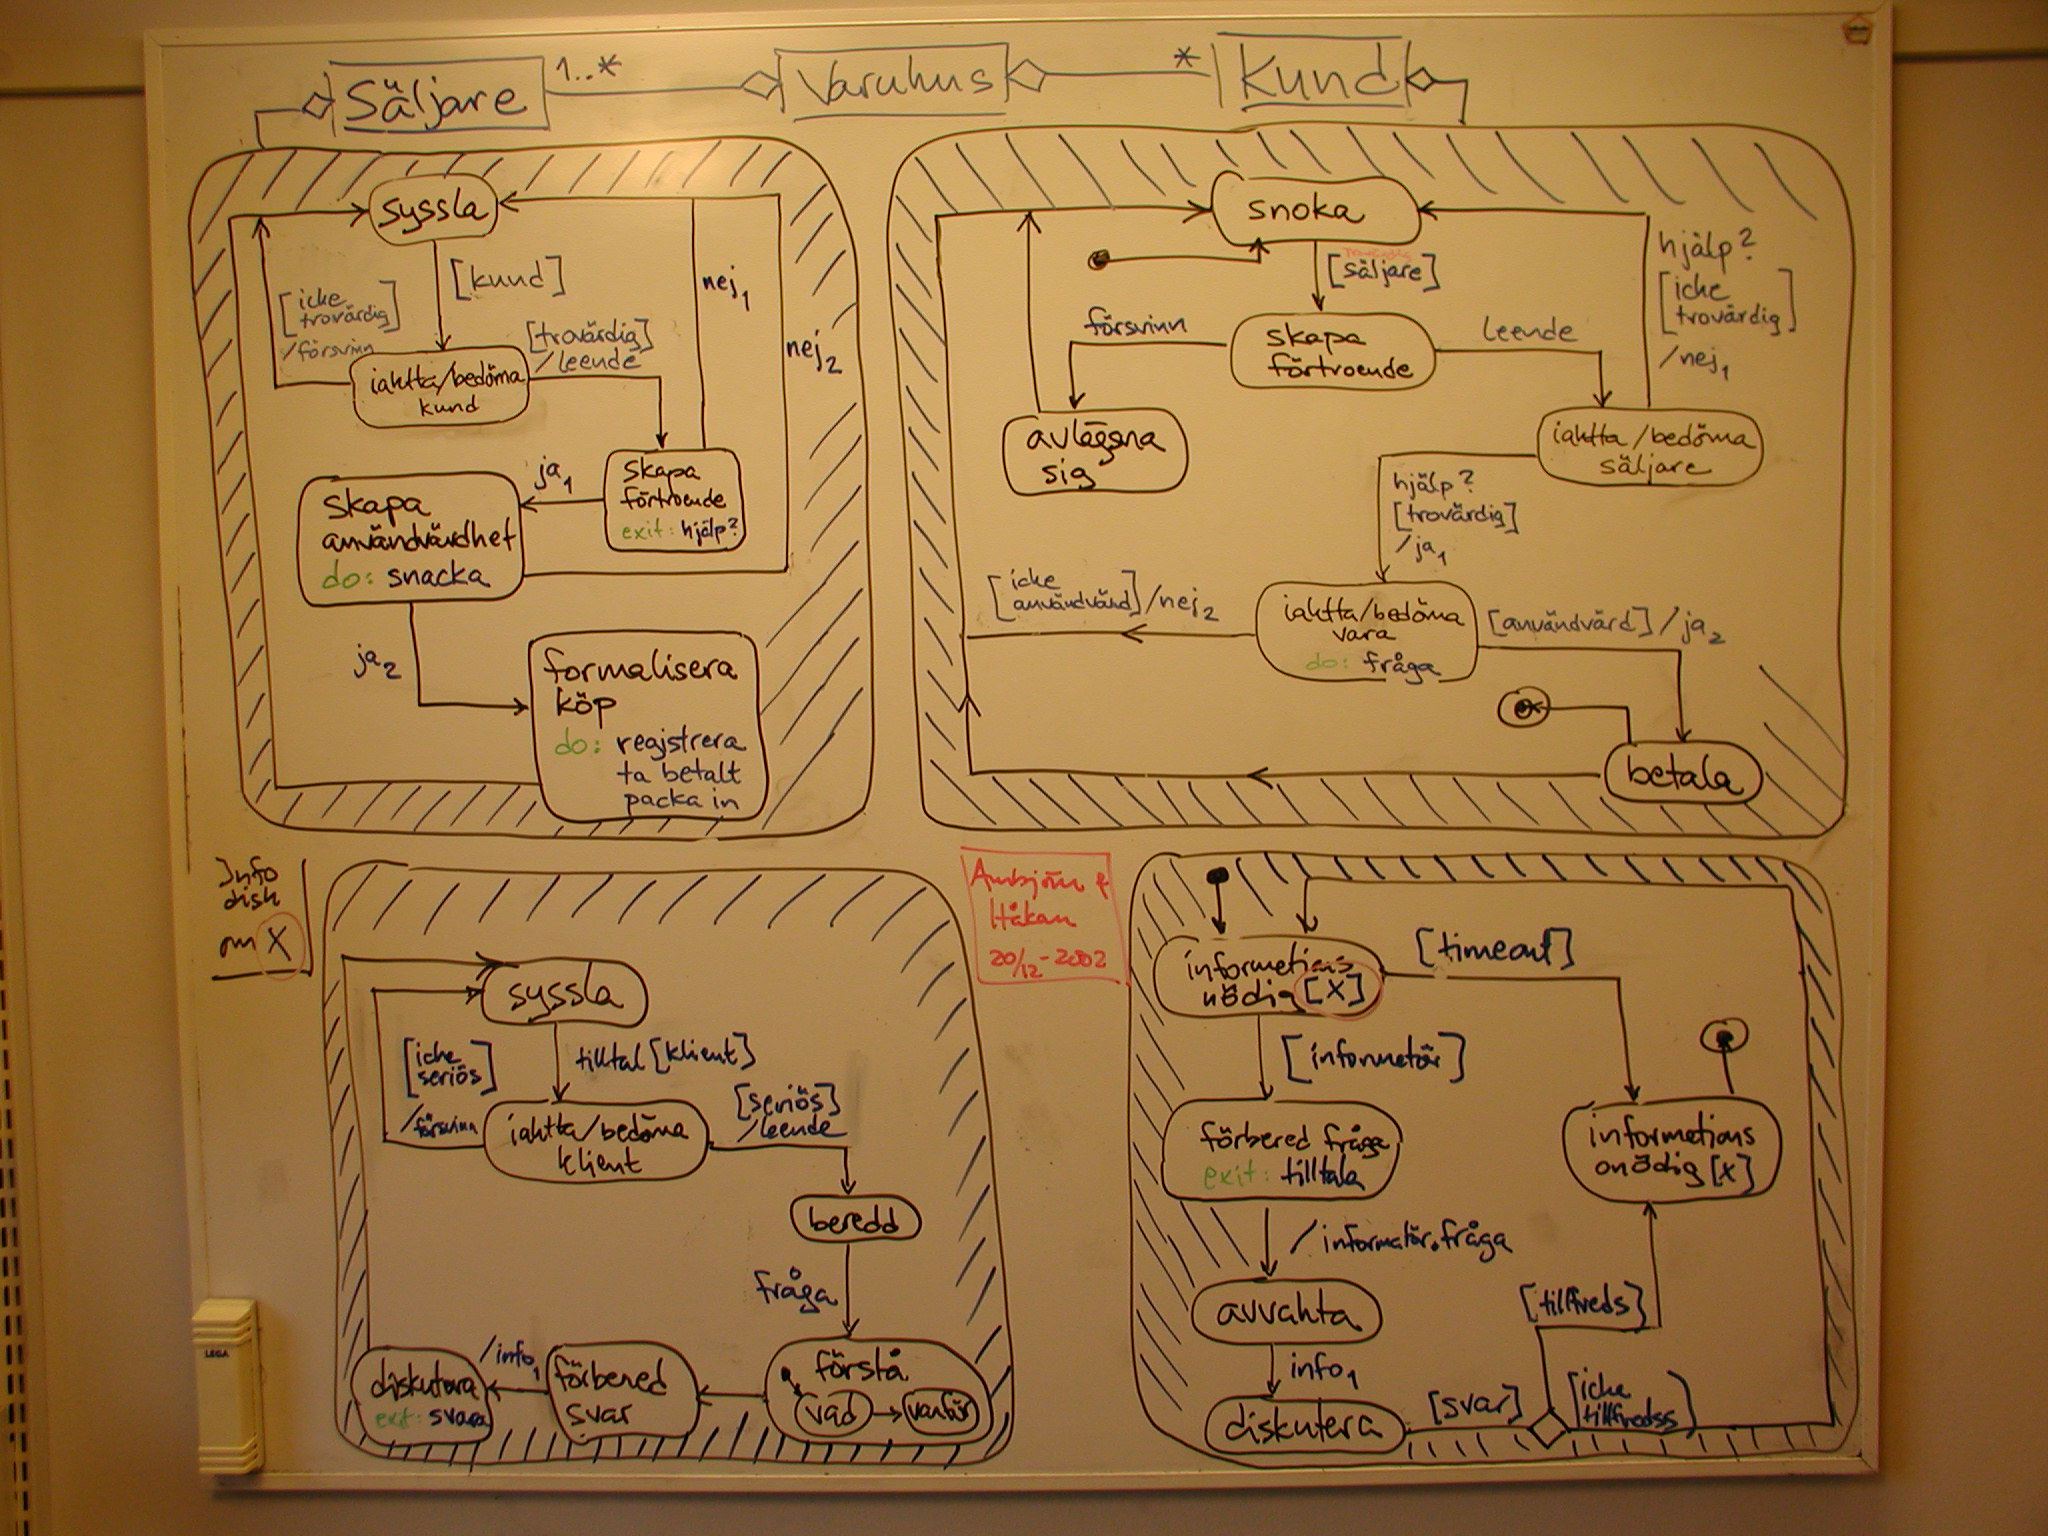 Säljare
1..*
Varuhus
*
Kund
syssla
[kund]
[icke
trovärdig]
/försvinn
iaktta/bedöma
kund
[trovärdig]
/leende
nej1
nej2
skapa
förtroende
exit: hjälp?
ja1
skapa
användvärdhet
do: snacka
ja2
formalisera
köp
do: registrera
ta betalt
packa in
snoka
[säljare]
skapa
förtroende
försvinn
leende
avlägsna
sig
hjälp?
[icke
trovärdig]
/nej1
iaktta/bedöma
säljare
hjälp?
[trovärdig]
/ja1
[icke
användvärd]/nej2
iaktta/bedöma
vara
do: fråga
[användvärd]/ja2
betala
Info
disk
om X
Ambjörn &
Håkan
20/12-2002
syssla
[icke
seriös]
/försvinn
tilltal[klient]
iaktta/bedöma
klient
[seriös]
/leende
beredd
fråga
förstå
vad
varför
förbered
svar
/info1
diskutera
exit: svara
informations
nödig[X]
[timeout]
[informatör]
förbered fråga
exit: tilltala
informations
onödig[x]
/informatör.fråga
avvakta
info1
diskutera
[svar]
[tillfreds]
[icke
tillfredss]
LEGA